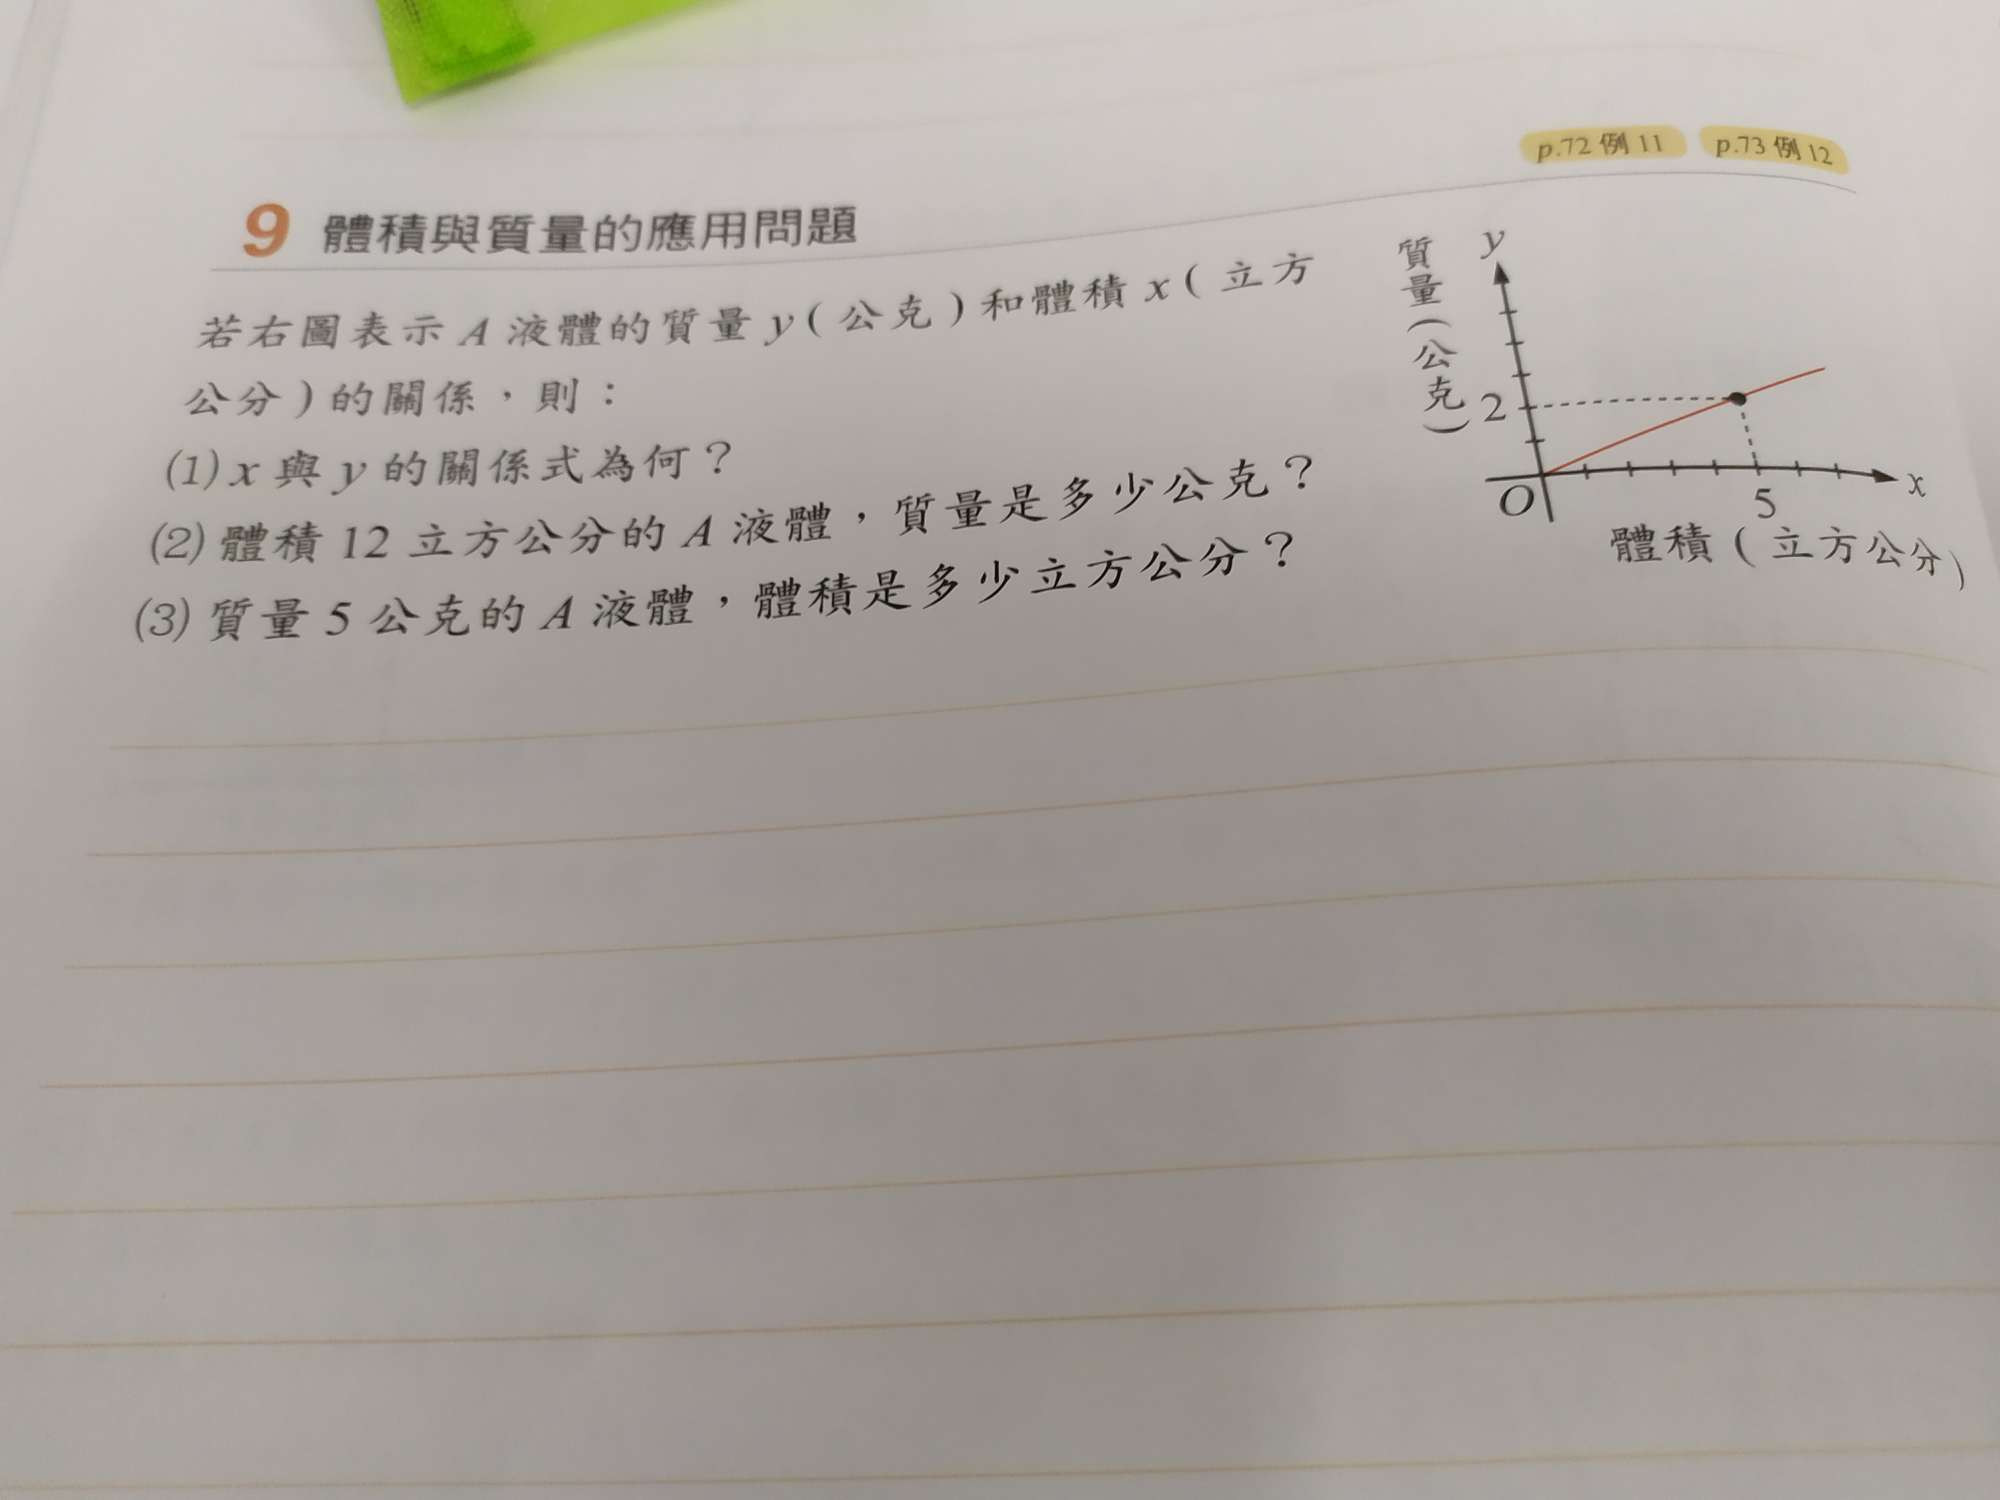 p.72 例 11
p.73 例 12
9 體積與質量的應用問題
若右圖表示 A 液體的質量 y(公克)和體積 x(立方
公分)的關係,則:
(1) x 與 y 的關係式為何?
(2) 體積 12 立方公分的 A 液體,質量是多少公克?
(3) 質量 5 公克的 A 液體,體積是多少立方公分?
質量(公克)
y
2
O
5
x
體積(立方公分)